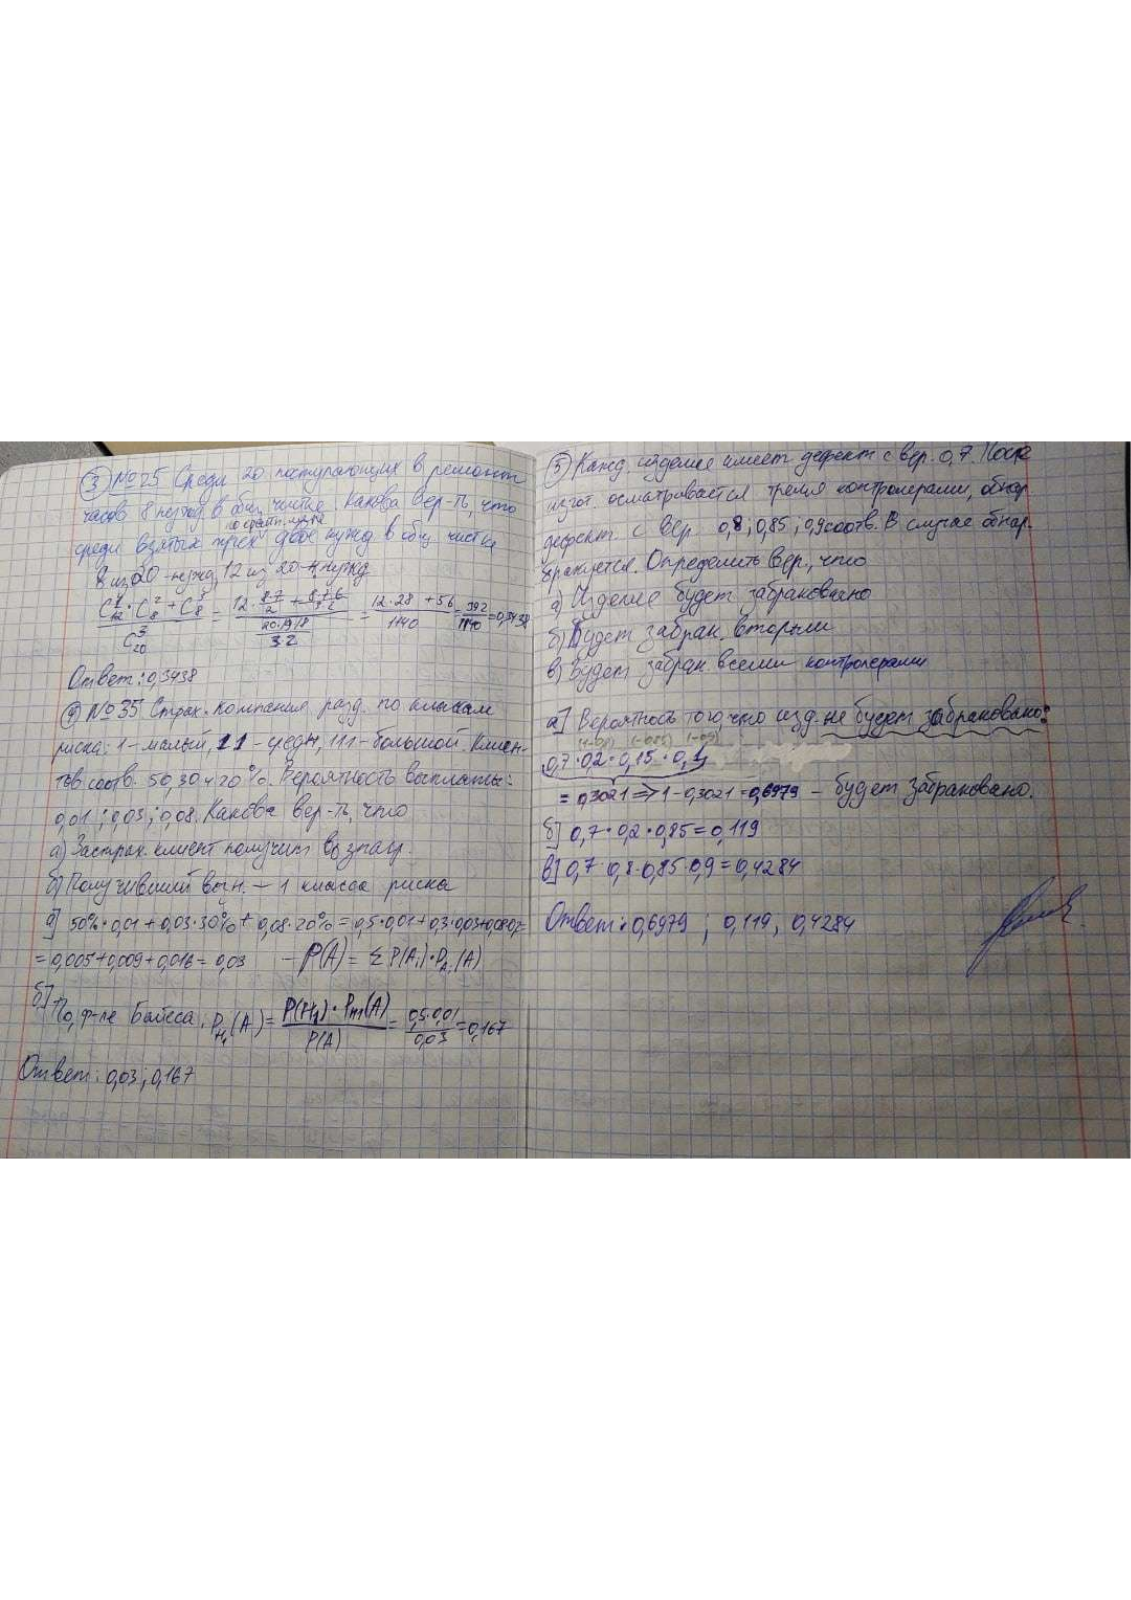 ③ №25 Среди 20 поступающих в ремонт
часов 8 нужд. в общ. чистке. Какова вер-ть, что
по крайн. мере
среди взятых трёх двое нужд в общ чистке
8 из 20 - нужд, 12 из 20 - н нужд
(C¹₁₂ · C²₈ + C³₈) / C³₂₀ = (12 · 8·7/2 + 8·7·6/3·2) / (20·19·18/3·2) = (12·28 + 56)/1140 = 392/1140 = 0,3438
Ответ: 0,3438
④ №35 Страх. компания разд. по классам
риска: 1 - малый, 11 - средн, 111 - большой. Клиен-
тов соотв. 50, 30 и 20%. Вероятность выплаты:
0,01; 0,03; 0,08. Какова вер-ть, что
а) Застрах. клиент получит вознагр.
б) Получивший возн. — 1 класса риска
а] 50%·0,01 + 0,03·30% + 0,08·20% = 0,5·0,01 + 0,3·0,03 + 0,08·0,2=
= 0,005 + 0,009 + 0,016 = 0,03 — P(A) = Σ P(Aᵢ)·P_Aᵢ(A)
б] По ф-ле Байеса. P_H₁(A) = P(H₁)·P_H1(A) / P(A) = 0,5·0,01 / 0,03 = 0,167
Ответ: 0,03; 0,167
⑤ Кажд. изделие имеет дефект с вер. 0,7. После
изгот. осматривается тремя контролерами, обнар
дефект с вер. 0,8; 0,85; 0,9 соотв. В случае обнар.
бракуется. Определить вер., что
а) Изделие будет забраковано
б) Будет забрак. вторым
в) Будет забрак. всеми контролерами
а] Вероятность того, что изд. не будет забраковано:
(1-0,8) (1-0,85) (1-0,9)
0,7 · 0,2 · 0,15 · 0,1
= 0,3021 ⇒ 1 - 0,3021 = 0,6979 — будет забраковано.
б] 0,7 · 0,2 · 0,85 = 0,119
в] 0,7 · 0,8 · 0,85 · 0,9 = 0,4284
Ответ: 0,6979; 0,119, 0,4284